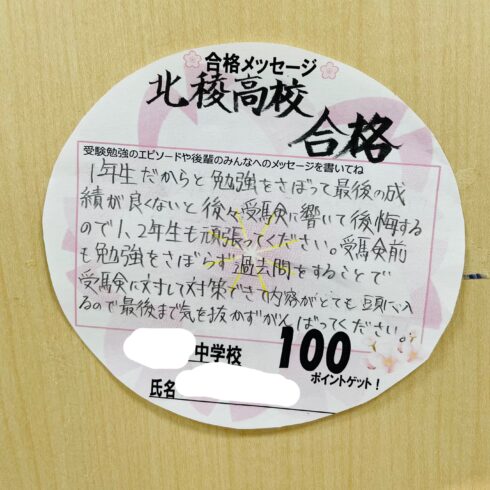 合格メッセージ
北稜高校
合格
受験勉強のエピソードや後輩のみんなへのメッセージを書いてね
1年生だからと勉強をさぼって最後の成
績が良くないと後々受験に響いて後悔する
ので1、2年生も頑張ってください。受験前
も勉強をさぼらず過去問をすることで
受験に対して対策できて内容がとても頭に入
るので最後まで気を抜かずがんばってください。
中学校
100
ポイントゲット!
氏名